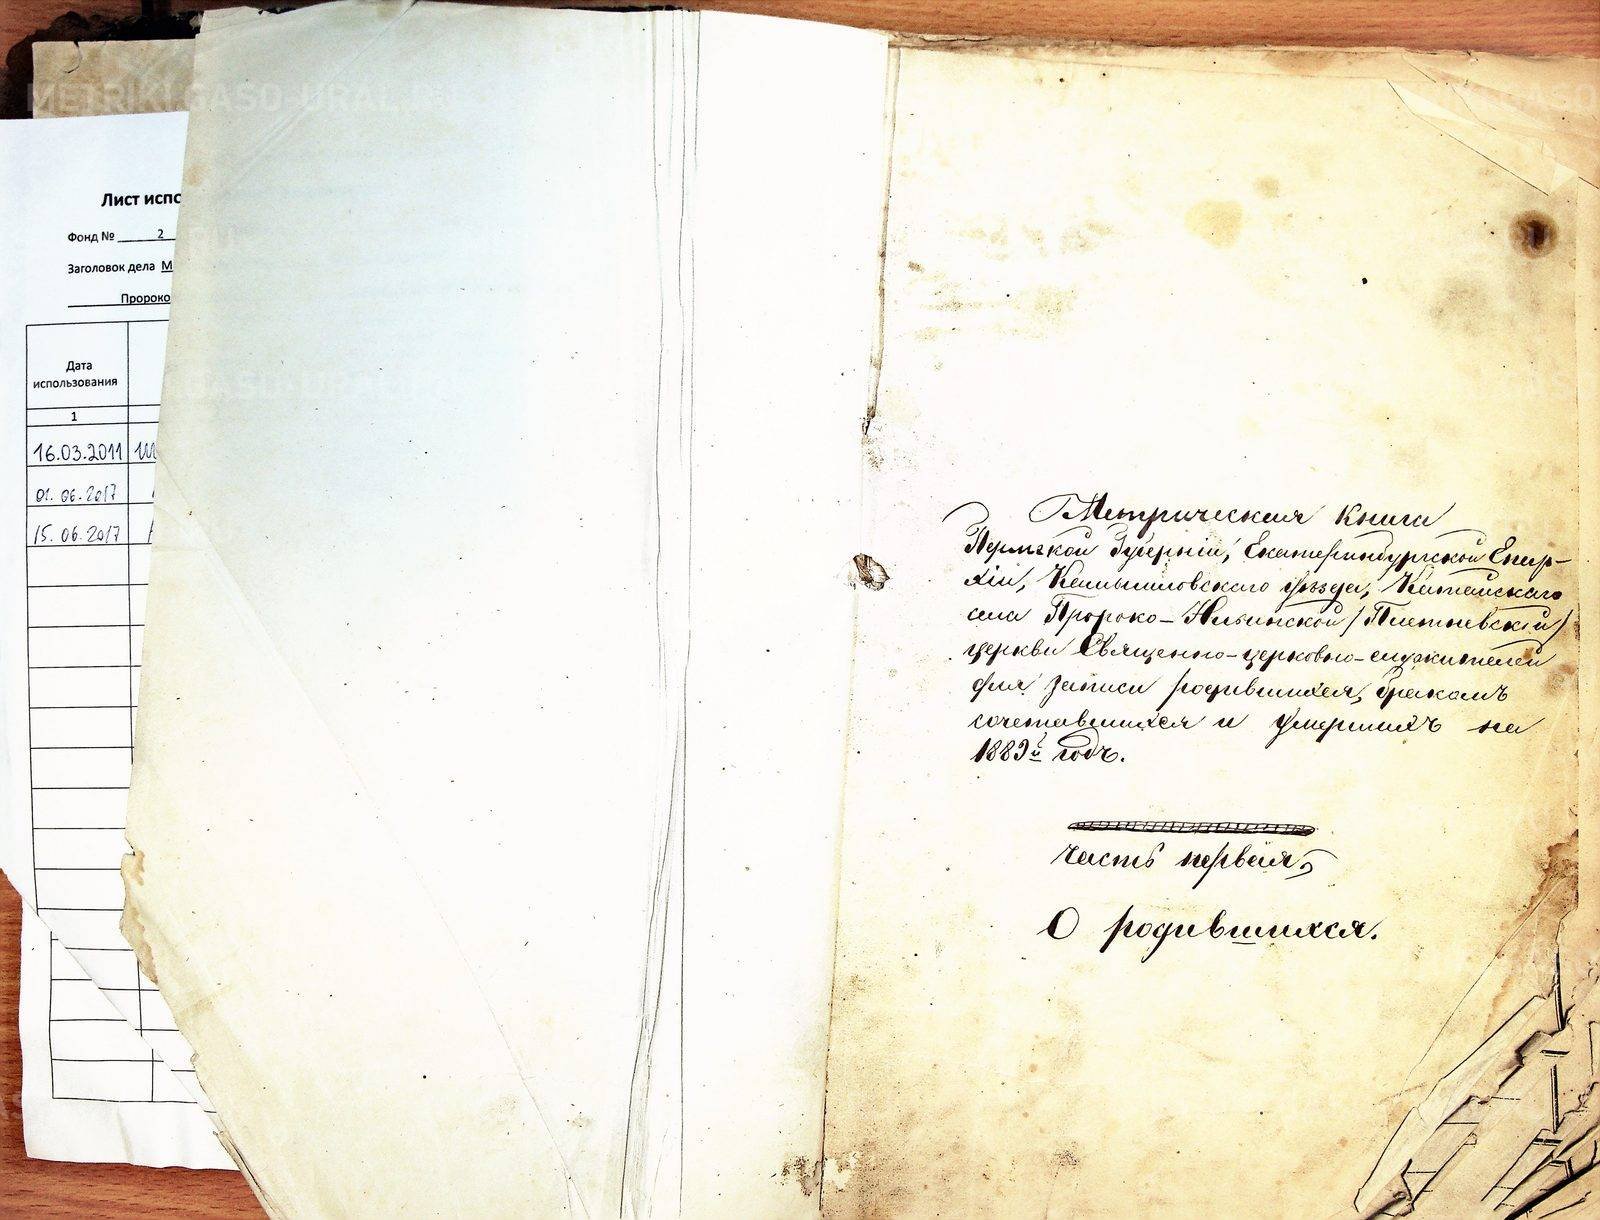 METRIKI.GASO-URAL.RU
Лист испо
Фонд № 2
Заголовок дела М
Пророко
Дата
использования
1
16.03.2011
01.06.2017
15.06.2017
Метрическая книга
Пермской Губернiи, Екатеринбургской Епар-
хiи, Камышловскаго уѣзда, Катайскаго
села Пророко-Ильинской /Плетневскiй/
церкви Священно-церковно-служителей
для записи родившихся, бракомъ
сочетавшихся и умершихъ на
1889й годъ.
Часть первая,
О родившихся.